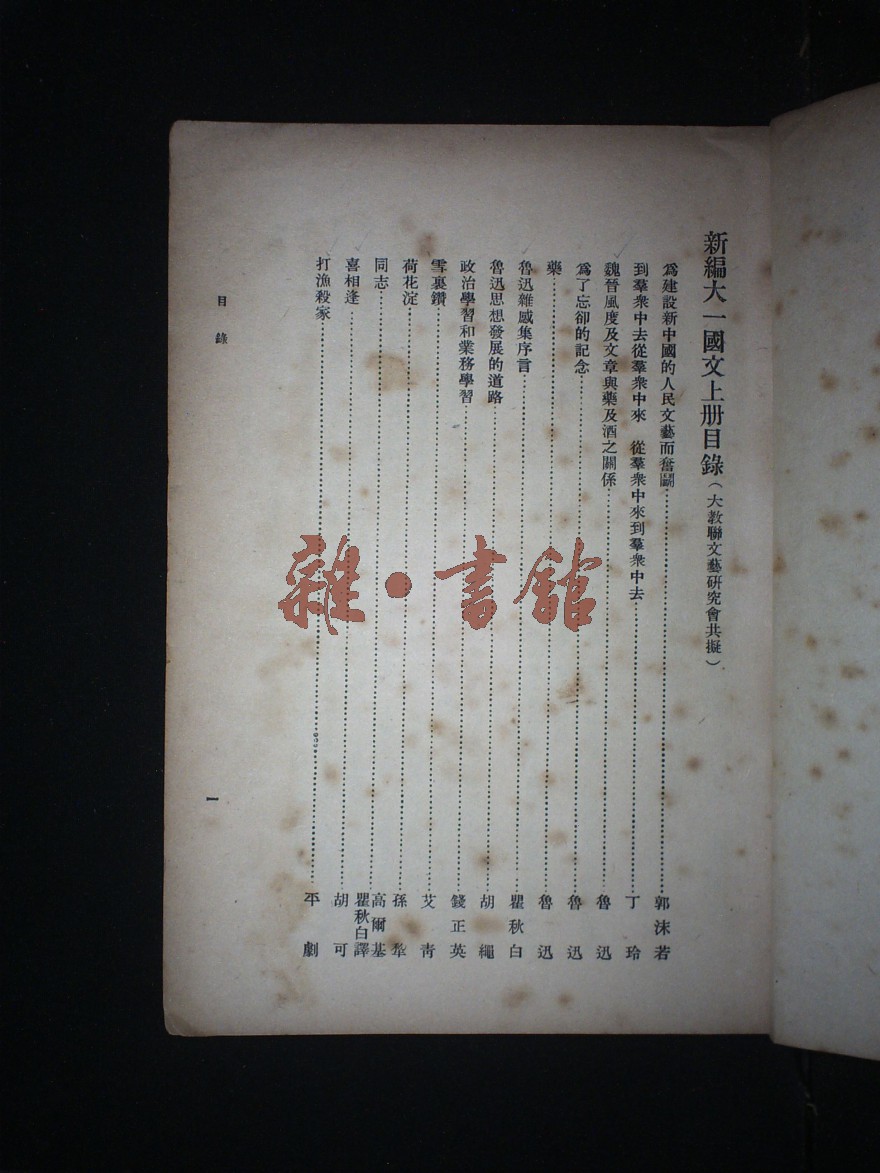 新編大一國文上册目錄（大教聯文藝研究會共擬）
爲建設新中國的人民文藝而奮鬭……郭沫若
到羣衆中去從羣衆中來　從羣衆中來到羣衆中去……丁玲
魏晉風度及文章與藥及酒之關係……魯迅
爲了忘卻的記念……魯迅
藥……魯迅
魯迅雜感集序言……瞿秋白
魯迅思想發展的道路……胡繩
政治學習和業務學習……錢正英
雪裏鑽……艾青
荷花淀……孫犂
同志……高爾基
瞿秋白譯
喜相逢……胡可
打漁殺家……平劇
目錄
1
雜·書館